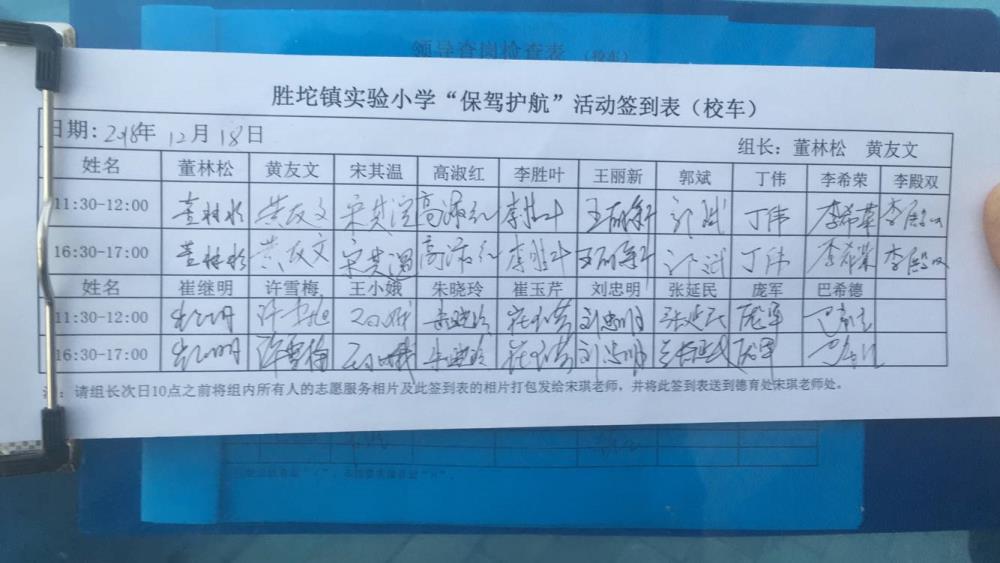 领导查岗检查表 (校车)
胜坨镇实验小学“保驾护航”活动签到表（校车）
日期: 2018年 12月 18日
组长：董林松 黄友文
姓名 董林松 黄友文 宋其温 高淑红 李胜叶 王丽新 郭斌 丁伟 李希荣 李殿双
11:30-12:00 董林松 黄友文 宋其温 高淑红 李胜叶 王丽新 郭斌 丁伟 李希荣 李殿双
16:30-17:00 董林松 黄友文 宋其温 高淑红 李胜叶 王丽新 郭斌 丁伟 李希荣 李殿双
姓名 崔继明 许雪梅 王小娥 朱晓玲 崔玉芹 刘忠明 张延民 庞军 巴希德
11:30-12:00 崔继明 许雪梅 王小娥 朱晓玲 崔玉芹 刘忠明 张延民 庞军 巴希德
16:30-17:00 崔继明 许雪梅 王小娥 朱晓玲 崔玉芹 刘忠明 张延民 庞军 巴希德
注：请组长次日10点之前将组内所有人的志愿服务相片及此签到表的相片打包发给宋琪老师，并将此签到表送到德育处宋琪老师处。